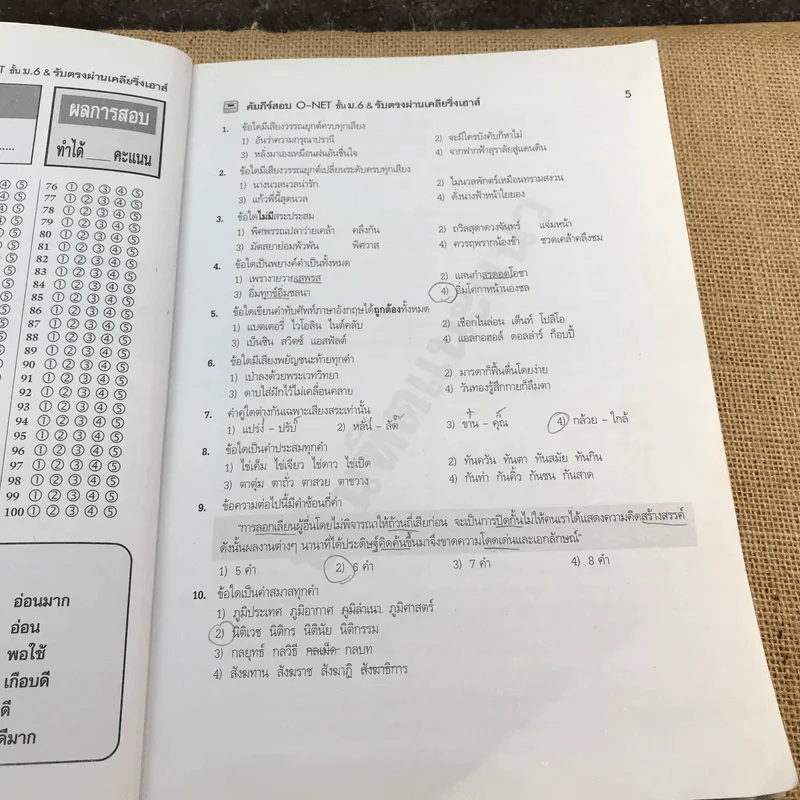 T ชั้น ม.6 & รับตรงผ่านเคลียริ่งเฮาส์
ผลการสอบ
ทำได้ ____ คะแนน
④ ⑤ 76 ① ② ③ ④ ⑤
④ ⑤ 77 ① ② ③ ④ ⑤
④ ⑤ 78 ① ② ③ ④ ⑤
④ ⑤ 79 ① ② ③ ④ ⑤
④ ⑤ 80 ① ② ③ ④ ⑤
④ ⑤ 81 ① ② ③ ④ ⑤
④ ⑤ 82 ① ② ③ ④ ⑤
④ ⑤ 83 ① ② ③ ④ ⑤
④ ⑤ 84 ① ② ③ ④ ⑤
④ ⑤ 85 ① ② ③ ④ ⑤
④ ⑤ 86 ① ② ③ ④ ⑤
④ ⑤ 87 ① ② ③ ④ ⑤
④ ⑤ 88 ① ② ③ ④ ⑤
⑤ 89 ① ② ③ ④ ⑤
⑤ 90 ① ② ③ ④ ⑤
⑤ 91 ① ② ③ ④ ⑤
⑤ 92 ① ② ③ ④ ⑤
⑤ 93 ① ② ③ ④ ⑤
⑤ 94 ① ② ③ ④ ⑤
⑤ 95 ① ② ③ ④ ⑤
⑤ 96 ① ② ③ ④ ⑤
⑤ 97 ① ② ③ ④ ⑤
⑤ 98 ① ② ③ ④ ⑤
⑤ 99 ① ② ③ ④ ⑤
⑤ 100 ① ② ③ ④ ⑤
อ่อนมาก
อ่อน
พอใช้
เกือบดี
ดี
ดีมาก
คัมภีร์สอบ O-NET ชั้น ม.6 & รับตรงผ่านเคลียริ่งเฮาส์ 5
1. ข้อใดมีเสียงวรรณยุกต์ครบทุกเสียง
1) อันว่าความกรุณาปรานี 2) จะมีใครบังคับก็หาไม่
3) หลังมาเองเหมือนฝนอันชื่นใจ 4) จากฟากฟ้าสุราลัยสู่แดนดิน
2. ข้อใดมีเสียงวรรณยุกต์เปลี่ยนระดับครบทุกเสียง
1) นางนวลนวลน่ารัก 2) ไม่นวลพักตร์เหมือนทรามสงวน
3) แก้วพี่นี้สุดนวล 4) ดั่งนางฟ้าหน้าใยยอง
3. ข้อใดไม่มีสระประสม
1) พิศพรรณปลาว่ายเคล้า คลึงกัน 2) ถวิลสุดาดวงจันทร์ แจ่มหน้า
3) มัตสยาย่อมพัวพัน พิศวาส 4) ควรฤพรากน้องช้า ชวดเคล้าคลึงชม
4. ข้อใดเป็นพยางค์คำเป็นทั้งหมด
1) เพรางายวายเสพรส 2) แสนกำสรดอดโอชา
3) อิ่มทุกข์อิ่มชลนา 4) อิ่มโศกาหน้านองชล
5. ข้อใดเขียนคำทับศัพท์ภาษาอังกฤษได้ถูกต้องทั้งหมด
1) แบตเตอรี่ ไวโอลิน ไนต์คลับ 2) เชือกไนล่อน เต็นท์ โปลิโอ
3) เบ็นซิน สวิตช์ แอสฟัลต์ 4) แอลกอฮอล์ ดอลล่าร์ ก็อบปี้
6. ข้อใดมีเสียงพยัญชนะท้ายทุกคำ
1) เป่าลงด้วยพระเวทวิทยา 2) มารดาก็ฟื้นตื่นโดยง่าย
3) ดาบใส่ฝักไว้ไม่เคลื่อนคลาย 4) วันทองรู้สึกกายก็ลืมตา
7. คำคู่ใดต่างกันเฉพาะเสียงสระเท่านั้น
1) แปรง – ปรับ 2) หลั่น – ลัด 3) ชาน – คุ้น 4) กล้วย – ใกล้
8. ข้อใดเป็นคำประสมทุกคำ
1) ไข่เค็ม ไข่เจียว ไข่ดาว ไข่เป็ด 2) ทันควัน ทันตา ทันสมัย ทันกิน
3) ตาตุ่ม ตาถั่ว ตาสวย ตาขวาง 4) กันท่า กันคิ้ว กันชน กันสาด
9. ข้อความต่อไปนี้มีคำซ้อนกี่คำ
"การลอกเลียนผู้อื่นโดยไม่พิจารณาให้ถ้วนถี่เสียก่อน จะเป็นการปิดกั้นไม่ให้คนเราได้แสดงความคิดสร้างสรรค์
ดังนั้นผลงานต่างๆ นานาที่ได้ประดิษฐ์คิดค้นขึ้นมาจึงขาดความโดดเด่นและเอกลักษณ์"
1) 5 คำ 2) 6 คำ 3) 7 คำ 4) 8 คำ
10. ข้อใดเป็นคำสมาสทุกคำ
1) ภูมิประเทศ ภูมิอากาศ ภูมิลำเนา ภูมิศาสตร์
2) นิติเวช นิติกร นิตินัย นิติกรรม
3) กลยุทธ์ กลวิธี กลเม็ด กลบท
4) สังฆทาน สังฆราช สังฆาฏิ สังฆาธิการ